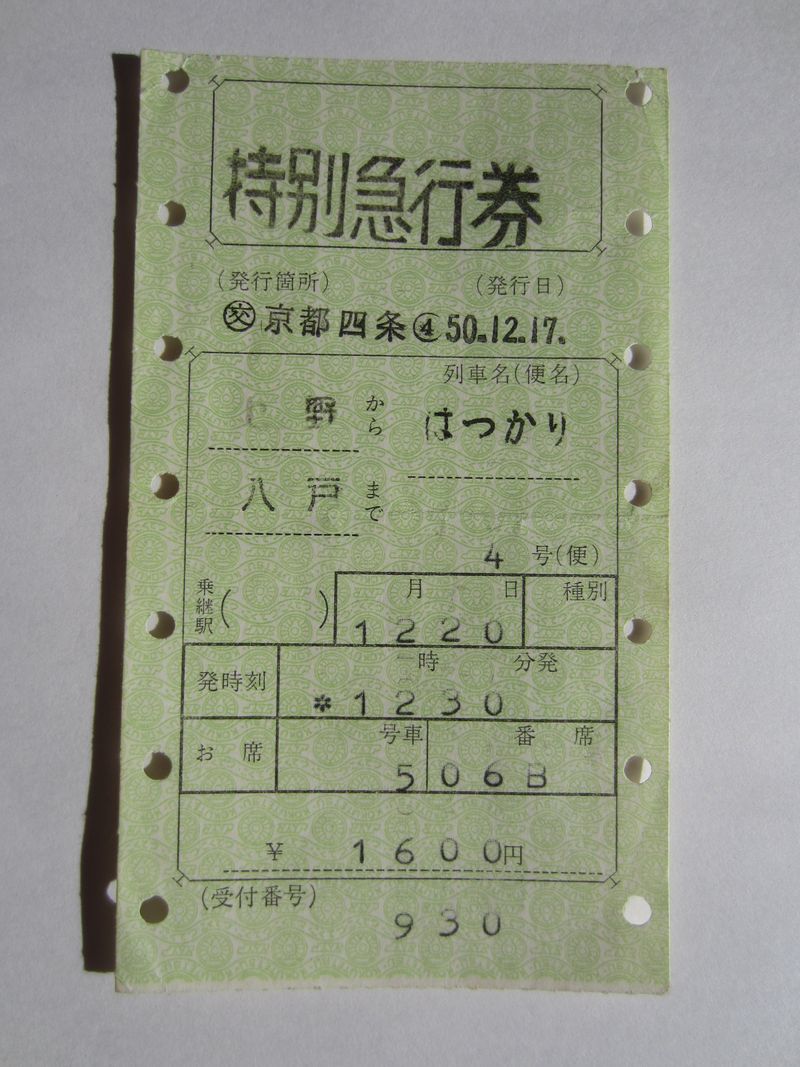 特別急行券
(発行箇所) (発行日)
交京都四条④50.12.17.
列車名(便名)
野から はつかり
八戸まで
4 号(便)
乗継駅( ) 月 日 種別
1220
発時刻 時 分発
*1230
お席 号車 番席
5 06B
¥ 1600円
(受付番号)
930